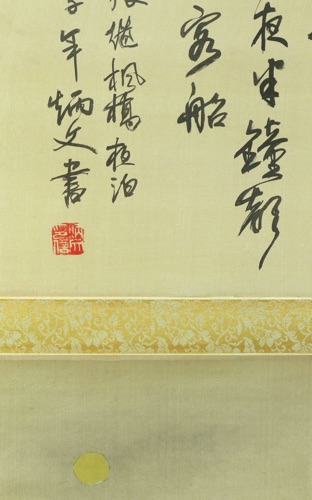 夜半鐘聲
客船
張繼楓橋夜泊
年炳文書